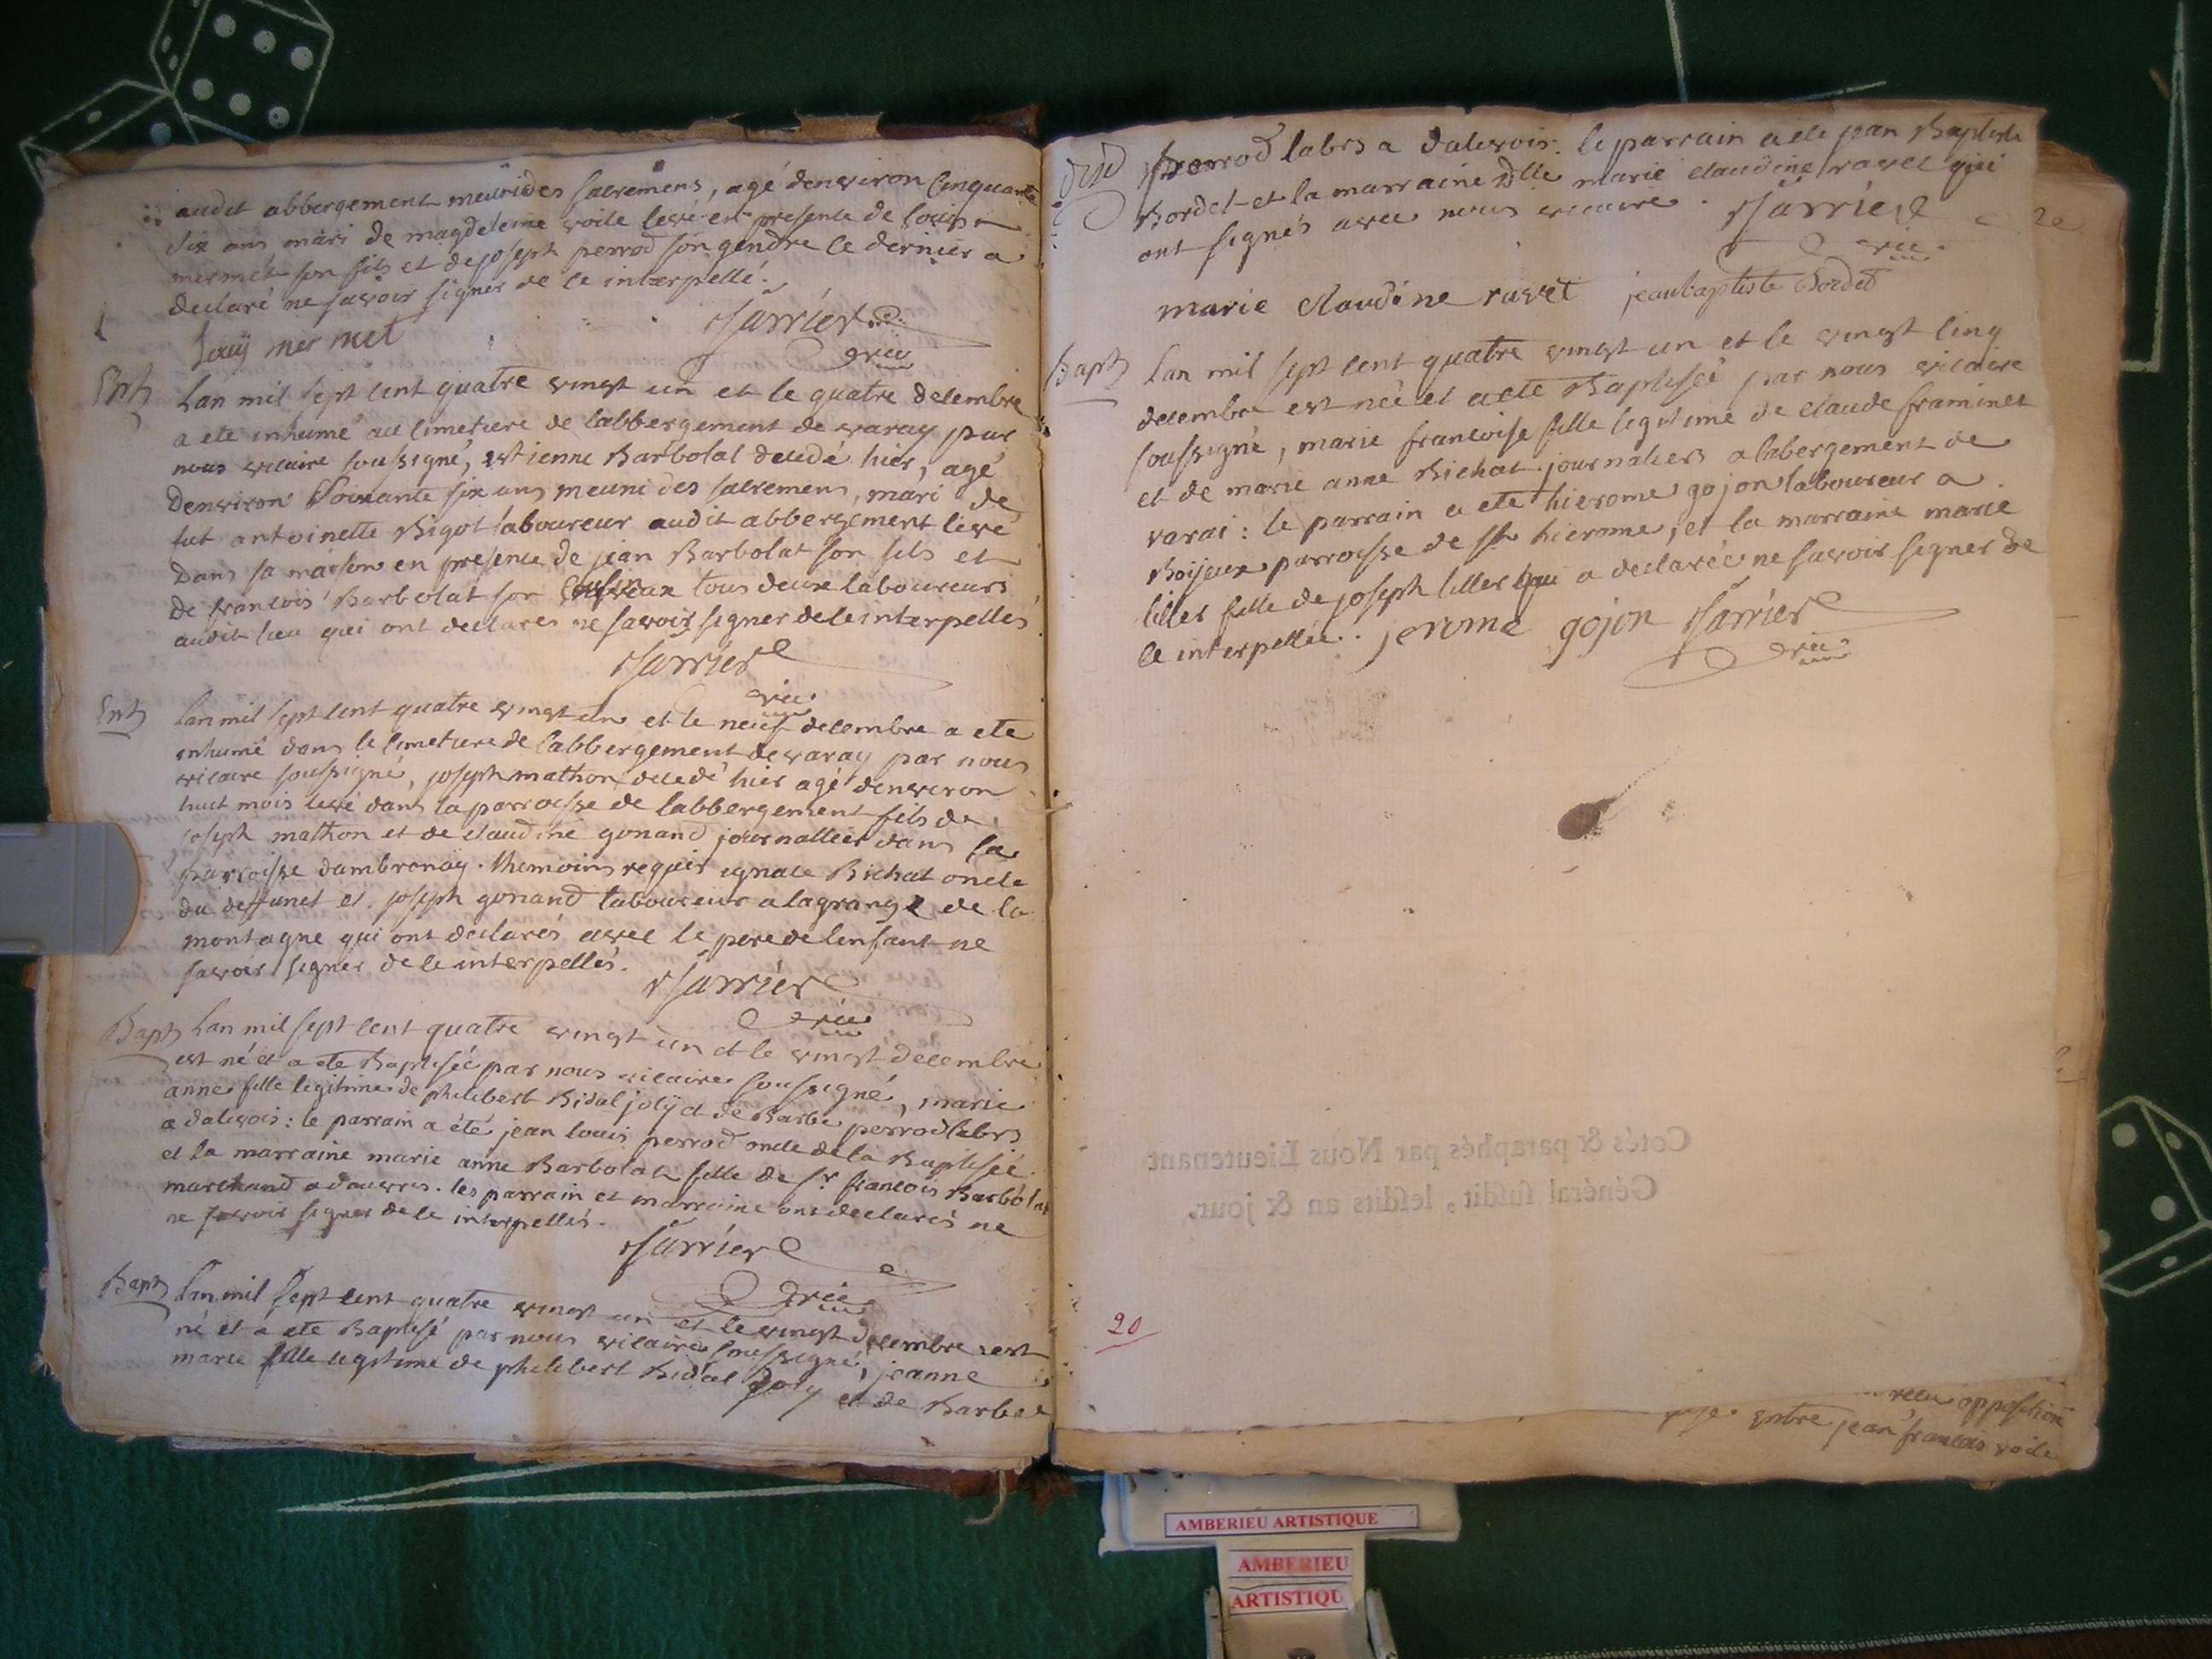 audit abbergement meuni des sacremens, agé denviron cinquante
six ans mari de magdeleine voile levé en presence de louis
mermet son fils et de joseph perrod son gendre le dernier a
declaré ne savoir signer de ce interpellé.
Louÿ mer met Sarrier
vic
Ent Lan mil sept cent quatre vingt un et le quatre decembre
a ete inhumé au cimetiere de labbergement de varay par
nous vicaire soussigné, estienne Barbolat decedé hier, agé
denviron soixante six ans meuni des sacremens, mari de
fut antoinette Bigot laboureur audit abbergement levé
dans sa maison en presence de jean Barbolat son fils et
de francois Barbolat son tous deux laboureurs
audit lieu qui ont declares ne savoir signer de ce interpellés
Sarrier
vic
Ent Lan mil sept cent quatre vingt un et le neuf decembre a ete
inhumé dans le cimetiere de labbergement de varay par nous
vicaire soussigné, joseph mathon decedé hier agé denviron
huit mois levé dans la parroisse de labbergement fils de
joseph mathon et de claudine gonand journallier dans la
parroisse dambronay. themoins requis ignace Bichat oncle
du deffunct et joseph gonand laboureur a lagrange de la
montagne qui ont declarés avec le pere de lenfant ne
savoir signer de ce interpellés.
Sarrier
vic
Bapt Lan mil sept cent quatre vingt un et le vingt decembre
est né et a ete Baptisée par nous vicaire soussigné, marie
anne fille legitime de philibert Bidal jolÿ et de Barbe perrod labrs
a dalivois: le parrain a été jean louis perrod oncle de la Baptisée
et la marraine marie anne Barbolat fille de sr francois Barbolat
marchand a douvres. les parrain et marraine ont declarés ne
ne savoir signer de ce interpellés.
Sarrier
vic
Bapt Lan mil sept cent quatre vingt un et le vingt decembre est
né et a ete Baptisé par nous vicaire soussigné, jeanne
marie fille legitime de philibert Bidal Joly et de Barbe
perrod labrs a dalivois. le parrain a ete jean Baptiste
Bordet et la marraine dlle marie claudine ravet qui
ont signés avec nous vicaire. Sarrier
vic
marie claudine ravet jeanbaptiste Bordet
Bapt Lan mil sept cent quatre vingt un et le vingt cinq
decembre est née et a ete Baptisée par nous vicaire
soussigné, marie francoise fille legitime de claude framinet
et de marie anne Bichat journaliers a labergement de
varai: le parrain a ete hierome gojon laboureur a
Boijeux parroisse de st hierome, et la marraine marie
lillet fille de joseph lillet qui a declarée ne savoir signer de
ce interpellée. jerome gojon Sarrier
vic
Cotés & paraphés par Nous Lieutenant
Général susdit, lesdits an & jour.
20
reçu opposition
entre jean francois voile
AMBERIEU ARTISTIQUE
AMBERIEU
ARTISTIQU